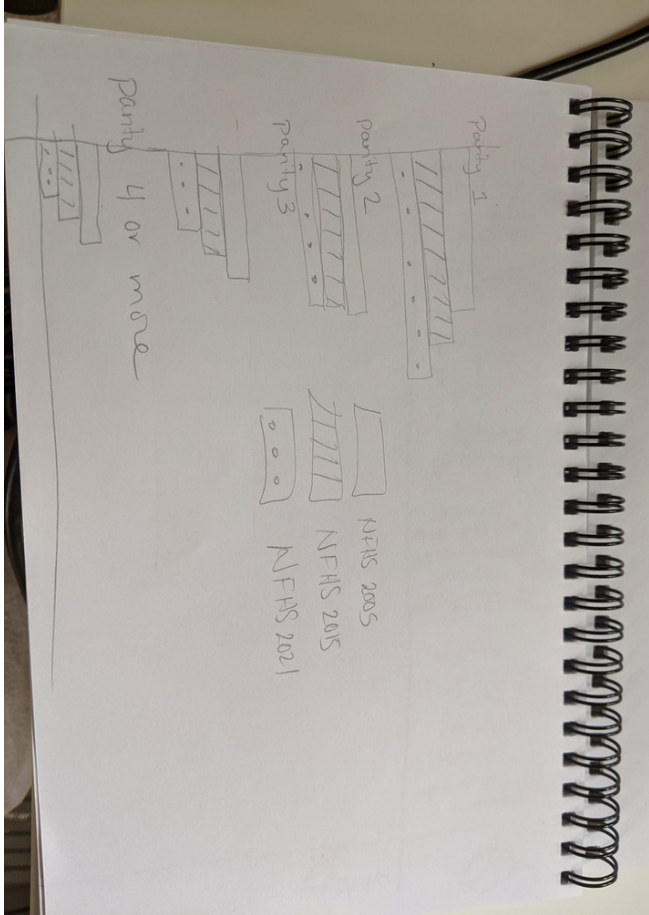 Parity 1
Parity 2
Parity 3
Parity 4 or more
NFHS 2005
NFHS 2015
NFHS 2021